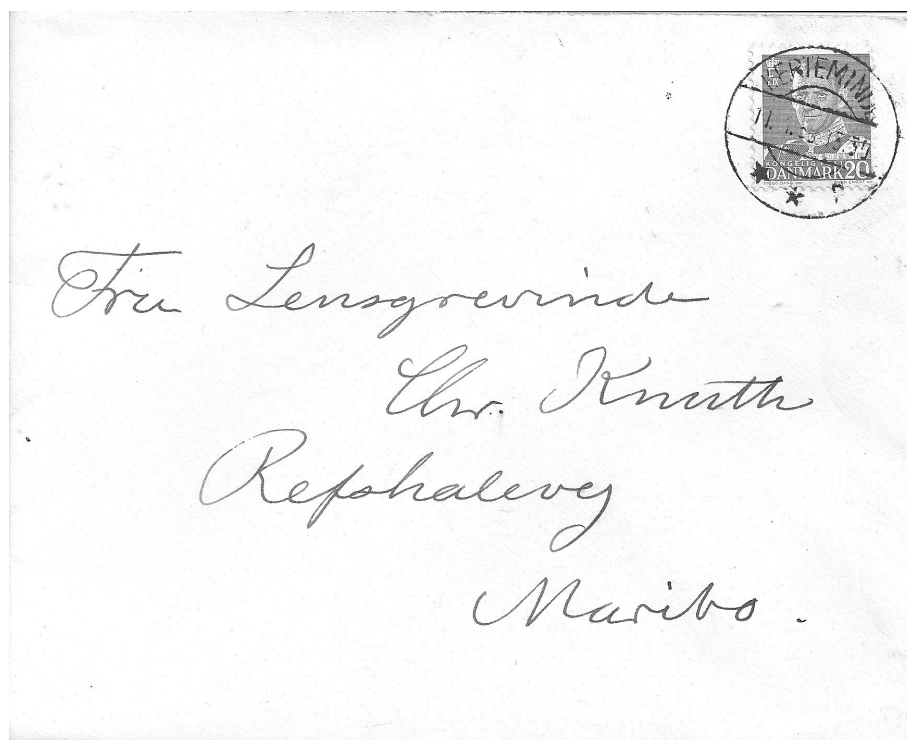 KERTEMINDE
KONGELIG POST
DANMARK 20
Fru Lensgrevinde
Chr. Knuth
Refshalevej
Maribo.